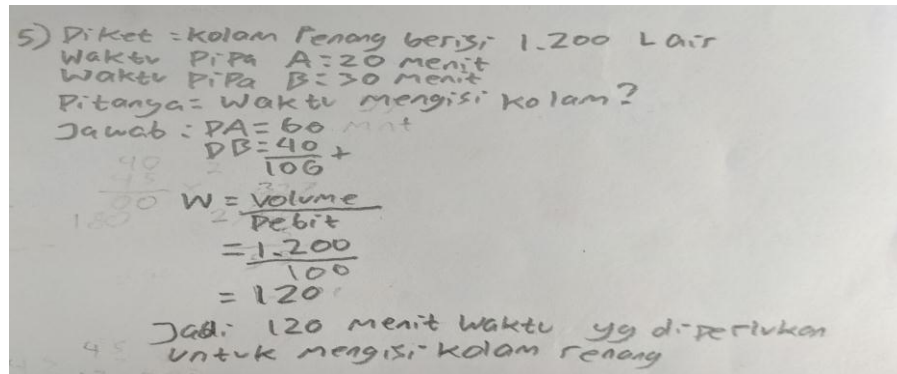 5) Diket = kolam Renang berisi 1.200 L air
Waktu Pipa A = 20 menit
Waktu Pipa B = 30 menit
Ditanya = Waktu mengisi kolam?
Jawab : DA = 60 mnt
DB = 40 +
100
W = Volume
Debit
= 1.200
100
= 120
Jadi 120 menit waktu yg diperlukan
untuk mengisi kolam renang